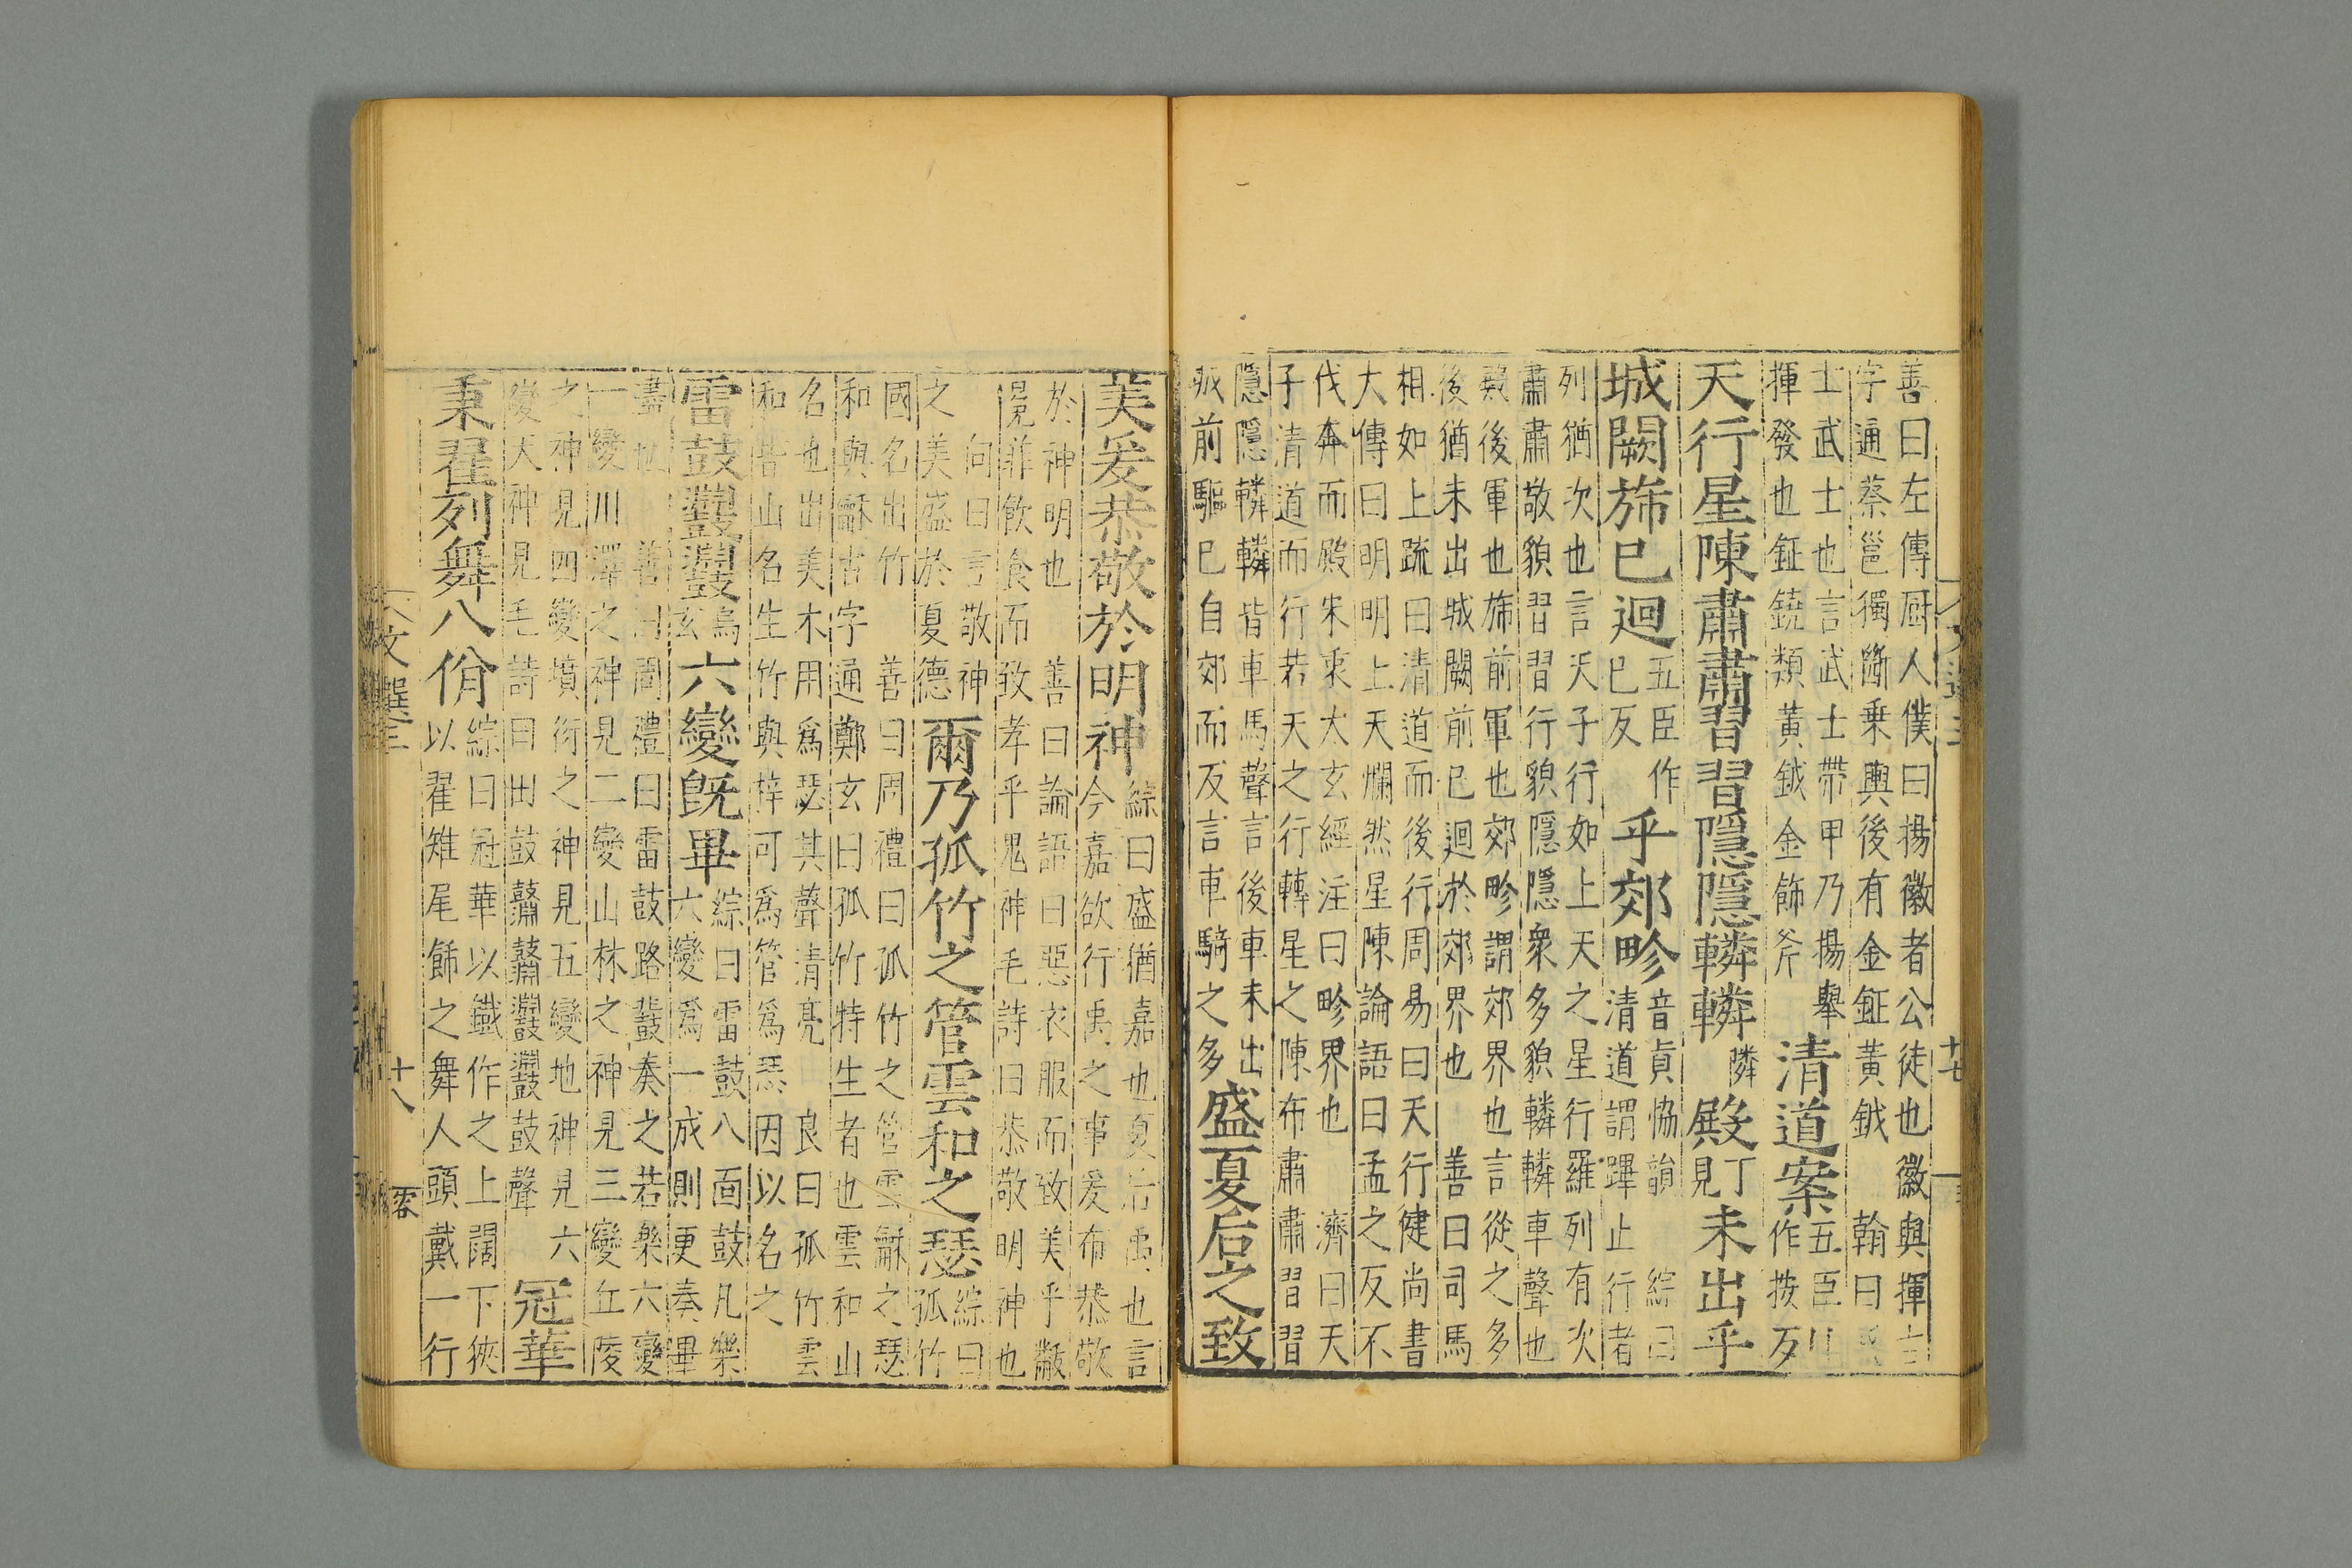 善曰左傳厨人僕曰揚徽者公徒也徽與揮
字通蔡邕獨斷乘輿後有金鉦黃鉞 翰曰
士武士也言武士帶甲乃揚舉
揮發也鉦鐃類黃鉞金飾斧
清道案
五臣
作按列
天行星陳肅肅習習隱隱轔轔
隣
殿
丁見
未出乎
城闕旆已迴
五臣作
已反
乎郊畛
音真恊韻 綜曰
清道謂蹕止行者
列猶次也言天子行如上天之星行羅列有次
肅肅敬貌習習行貌隱隱衆多貌轔轔車聲也
殿後軍也旆前軍也郊畛謂郊界也言從之多
後猶未出城闕前已迴於郊界也 善曰司馬
相如上疏曰清道而後行周易曰天行健尚書
大傳曰明明上天爛然星陳論語曰孟之反不
伐奔而殿宋衷太玄經注曰畛界也 濟曰天
子清道而行若天之行轉星之陳布肅肅習習
隱隱轔轔皆車馬聲言後車未出
城前驅已自郊而反言車騎之多
盛夏后之致
美爰恭敬於明神
綜曰盛猶嘉也夏后禹也言
今嘉欲行禹之事爰布恭敬
於神明也 善曰論語曰惡衣服而致美乎黻
冕菲飲食而致孝乎鬼神毛詩曰恭敬明神也
向曰言敬神
之美盛於夏德
爾乃孤竹之管雲和之瑟
綜曰
孤竹
國名出竹 善曰周禮曰孤竹之管雲龢之瑟
和與龢古字通鄭玄曰孤竹特生者也雲和山
名也出美木用爲瑟其聲清亮 良曰孤竹雲
和皆山名生竹與梓可爲管爲瑟因以名之
雷鼓鼝鼝
烏玄
六變旣畢
綜曰雷鼓八面鼓凡樂
六變爲一成則更奏畢
盡也 善曰周禮曰雷鼓路鼗奏之若樂六變
一變川澤之神見二變山林之神見三變丘陵
之神見四變墳衍之神見五變地神見六
變天神見毛詩曰鼓鼘鼘鼝鼝鼓聲
冠華
秉翟列舞八佾
綜曰冠華以鐵作之上闊下狹
以翟雉尾飾之舞人頭戴一行
文選三
十八